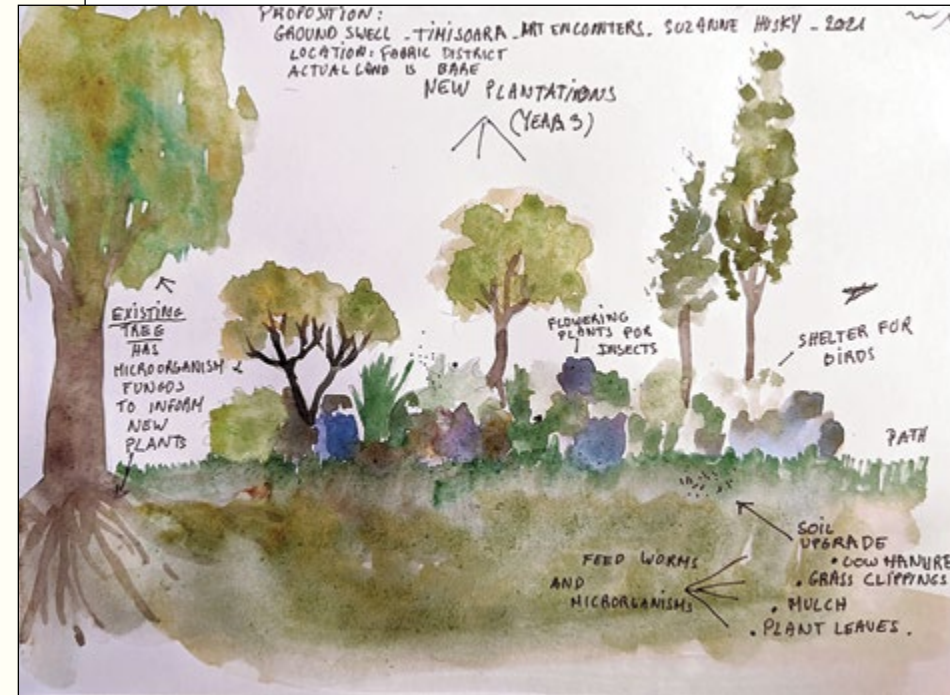 PROPOSITION:
GROUND SWELL - TIMISOARA - ART ENCOUNTERS. SUZANNE HUSKY - 2021
LOCATION: FABRIC DISTRICT
ACTUAL LAND IS BARE
NEW PLANTATIONS
(YEAR 3)
EXISTING
TREE
HAS
MICROORGANISM &
FUNGOS
TO INFORM
NEW
PLANTS
FLOWERING
PLANTS FOR
INSECTS
SHELTER FOR
BIRDS
PATH
SOIL
UPGRADE
• COW MANURE
• GRASS CLIPPINGS
• MULCH
• PLANT LEAVES.
FEED WORMS
AND
MICRORGANISMS